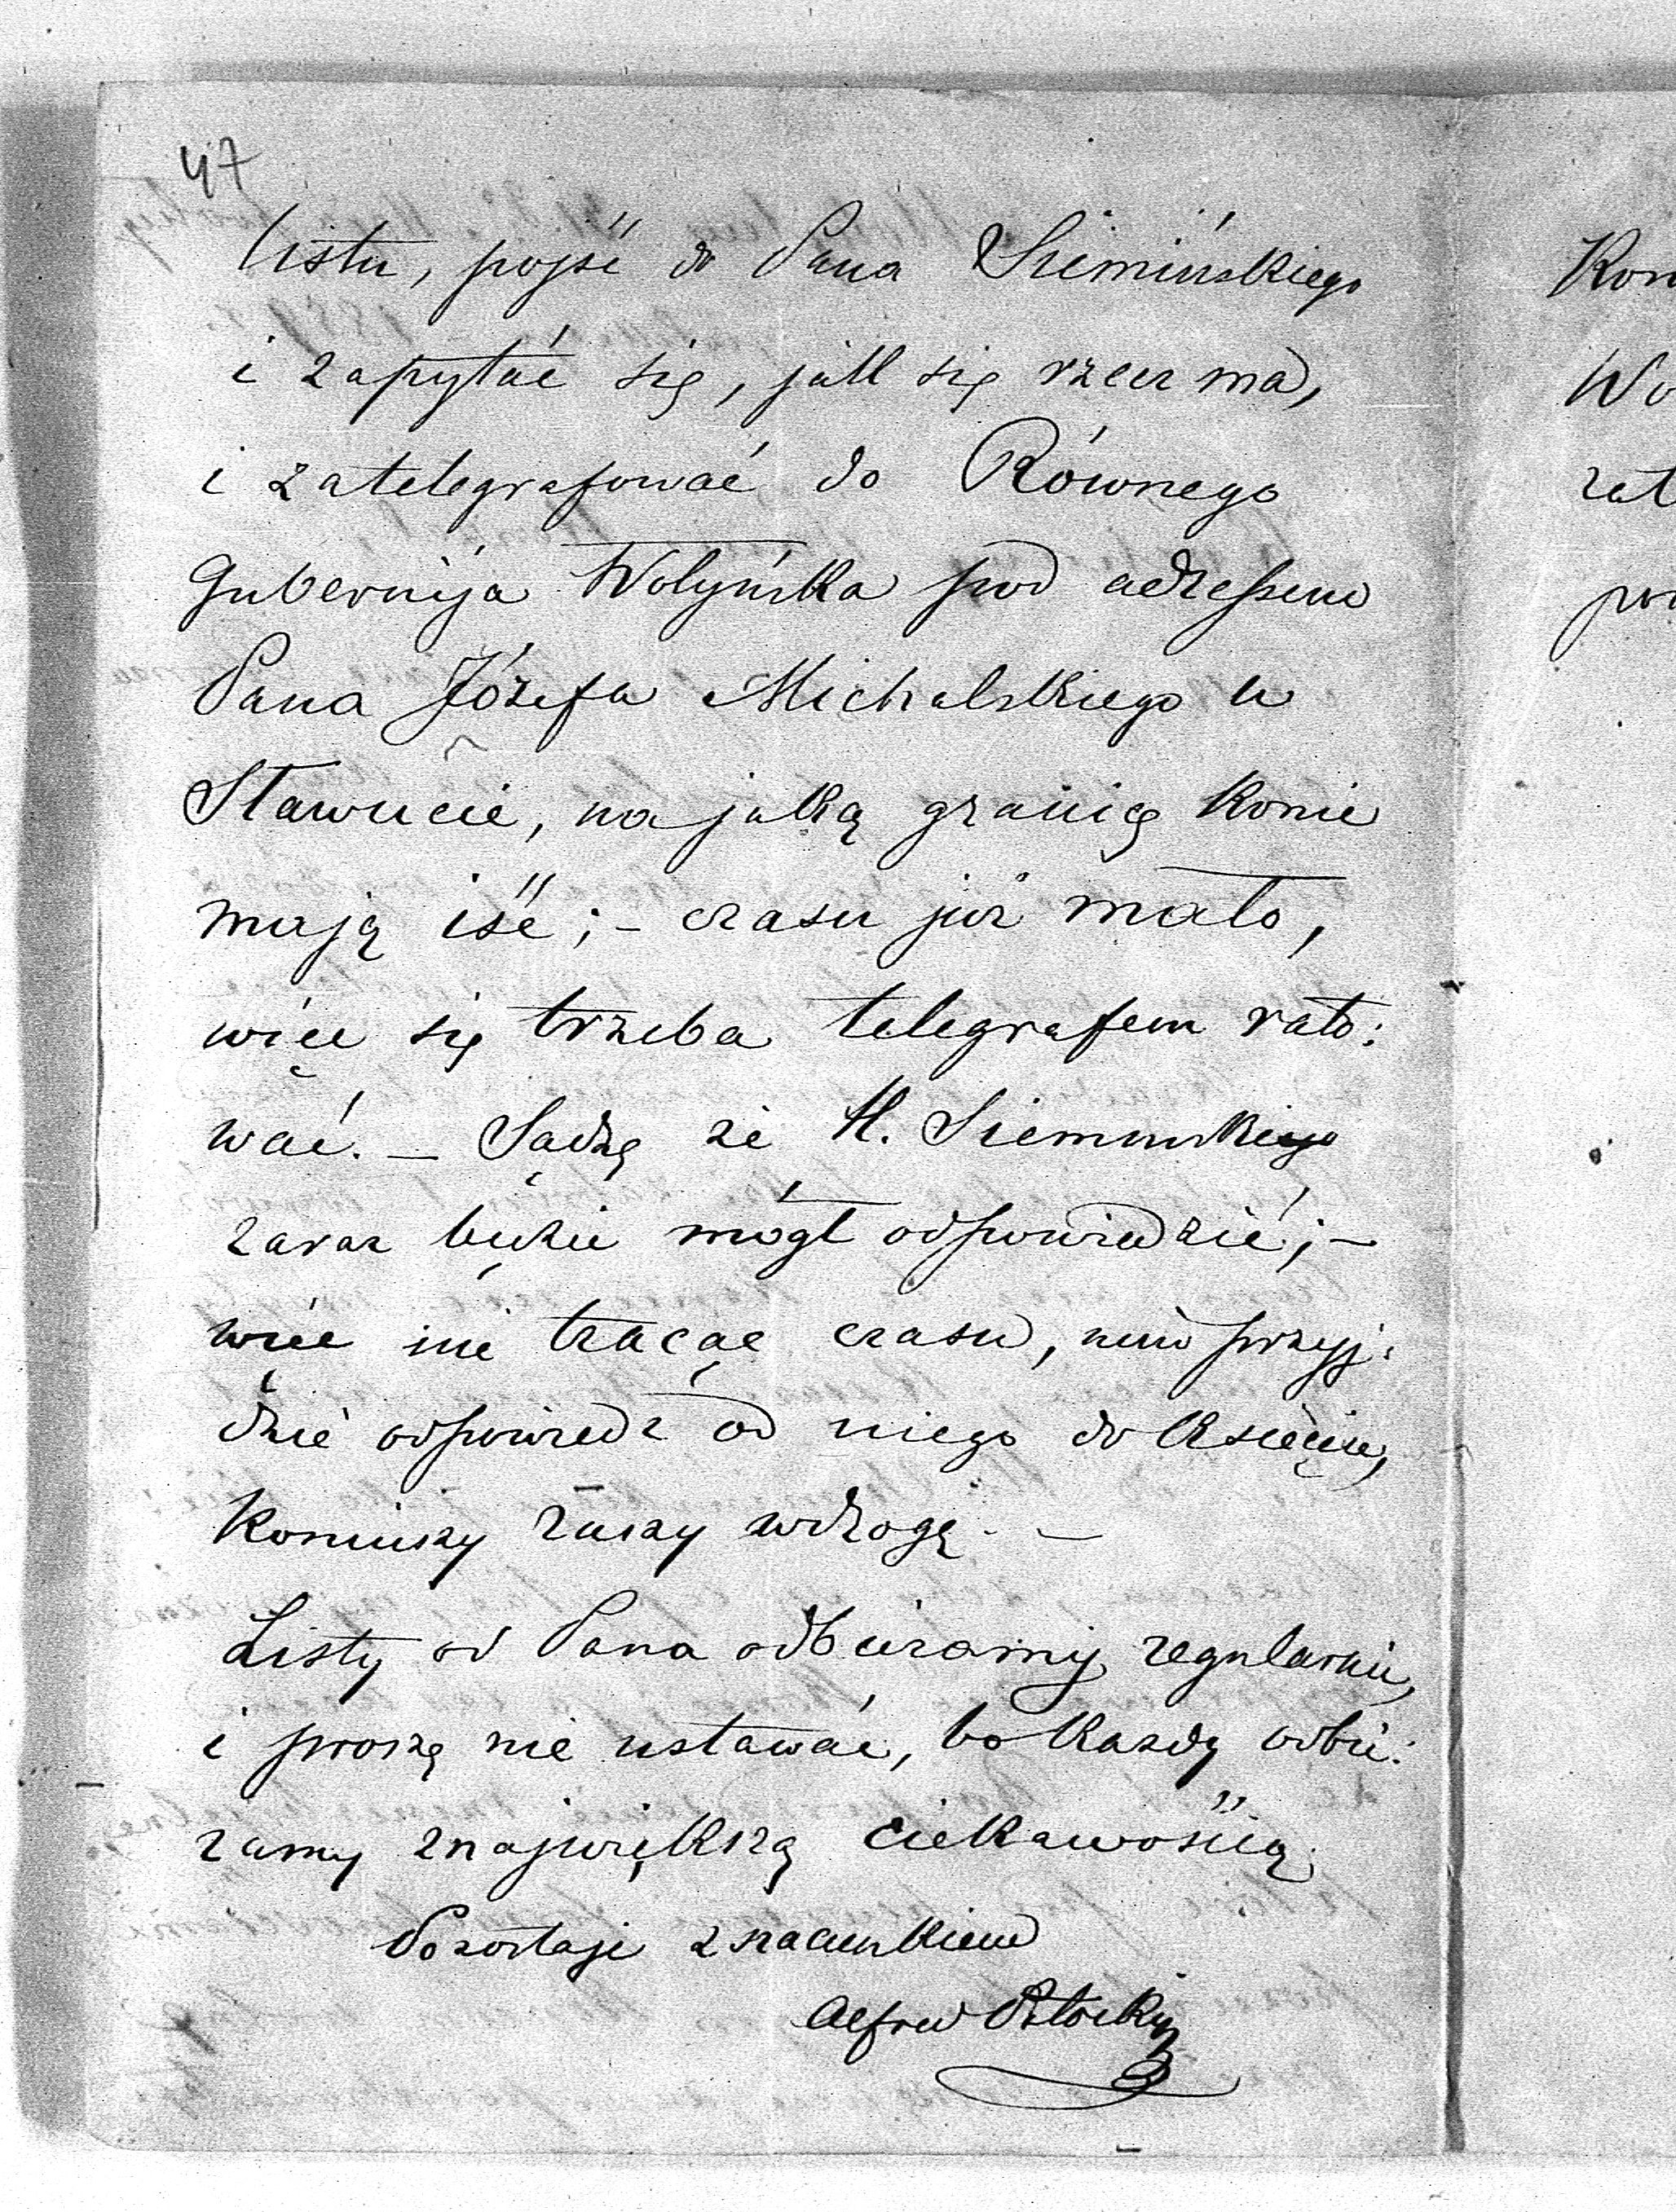 47
listu, pojść do Pana Siemińskiego
i zapytać się, jak się rzecz ma,
i zatelegrafować do Równego
Gubernija Wołyńska pod adressem
Pana Józefa Michalskiego w
Sławucie, na jaką granicę konie
mają iść; – czasu już mało,
więc się trzeba telegrafem rato:
wać. – Sądzę że H. Siemińskiego
zaraz będzie mógł odpowiedzieć; –
więc nie tracąc czasu, nim przyj:
dzie odpowiedz od niego do Księcia,
Koniuszy ruszy w drogę. –
Listy od Pana odbieramy regularnie,
i proszę nie ustawać, bo każdy odbie:
ramy z największą ciekawością.
Pozostaję z szacunkiem
Alfred Potocki
Kon
Wo